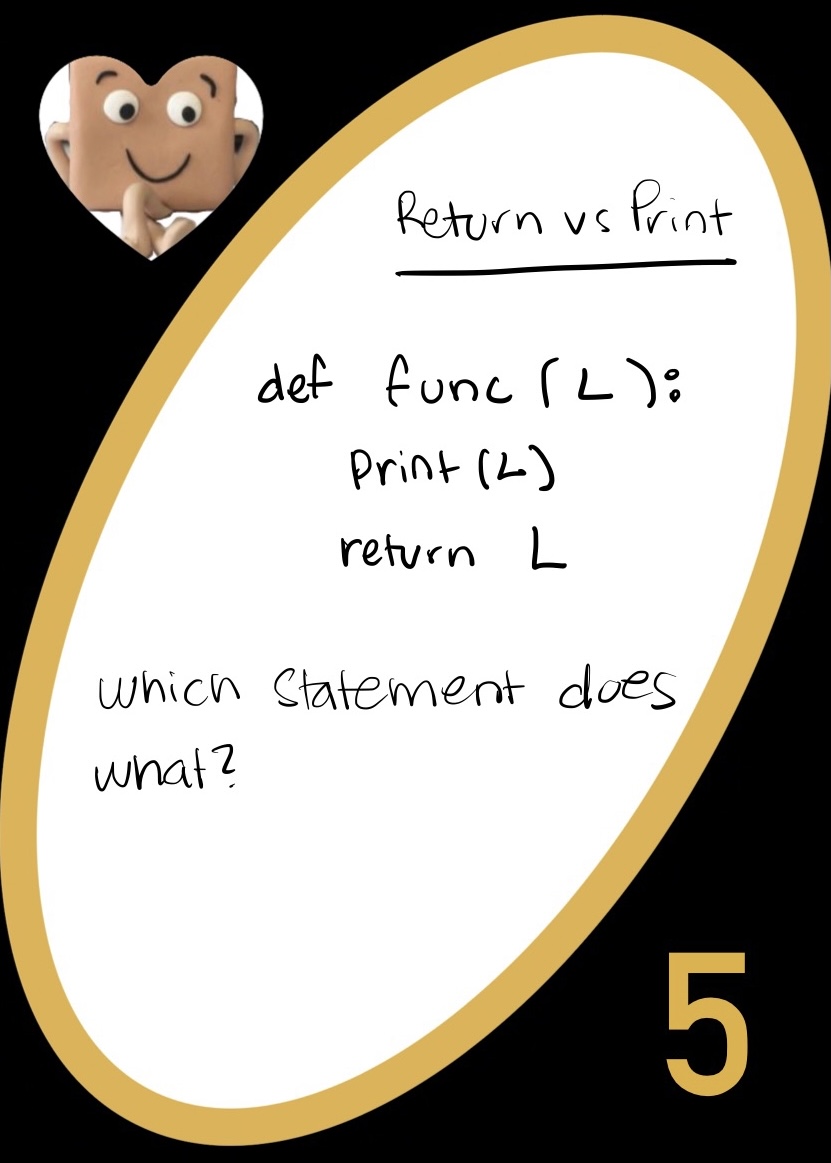 Return vs Print
def func(L):
print(L)
return L
which statement does
what?
5